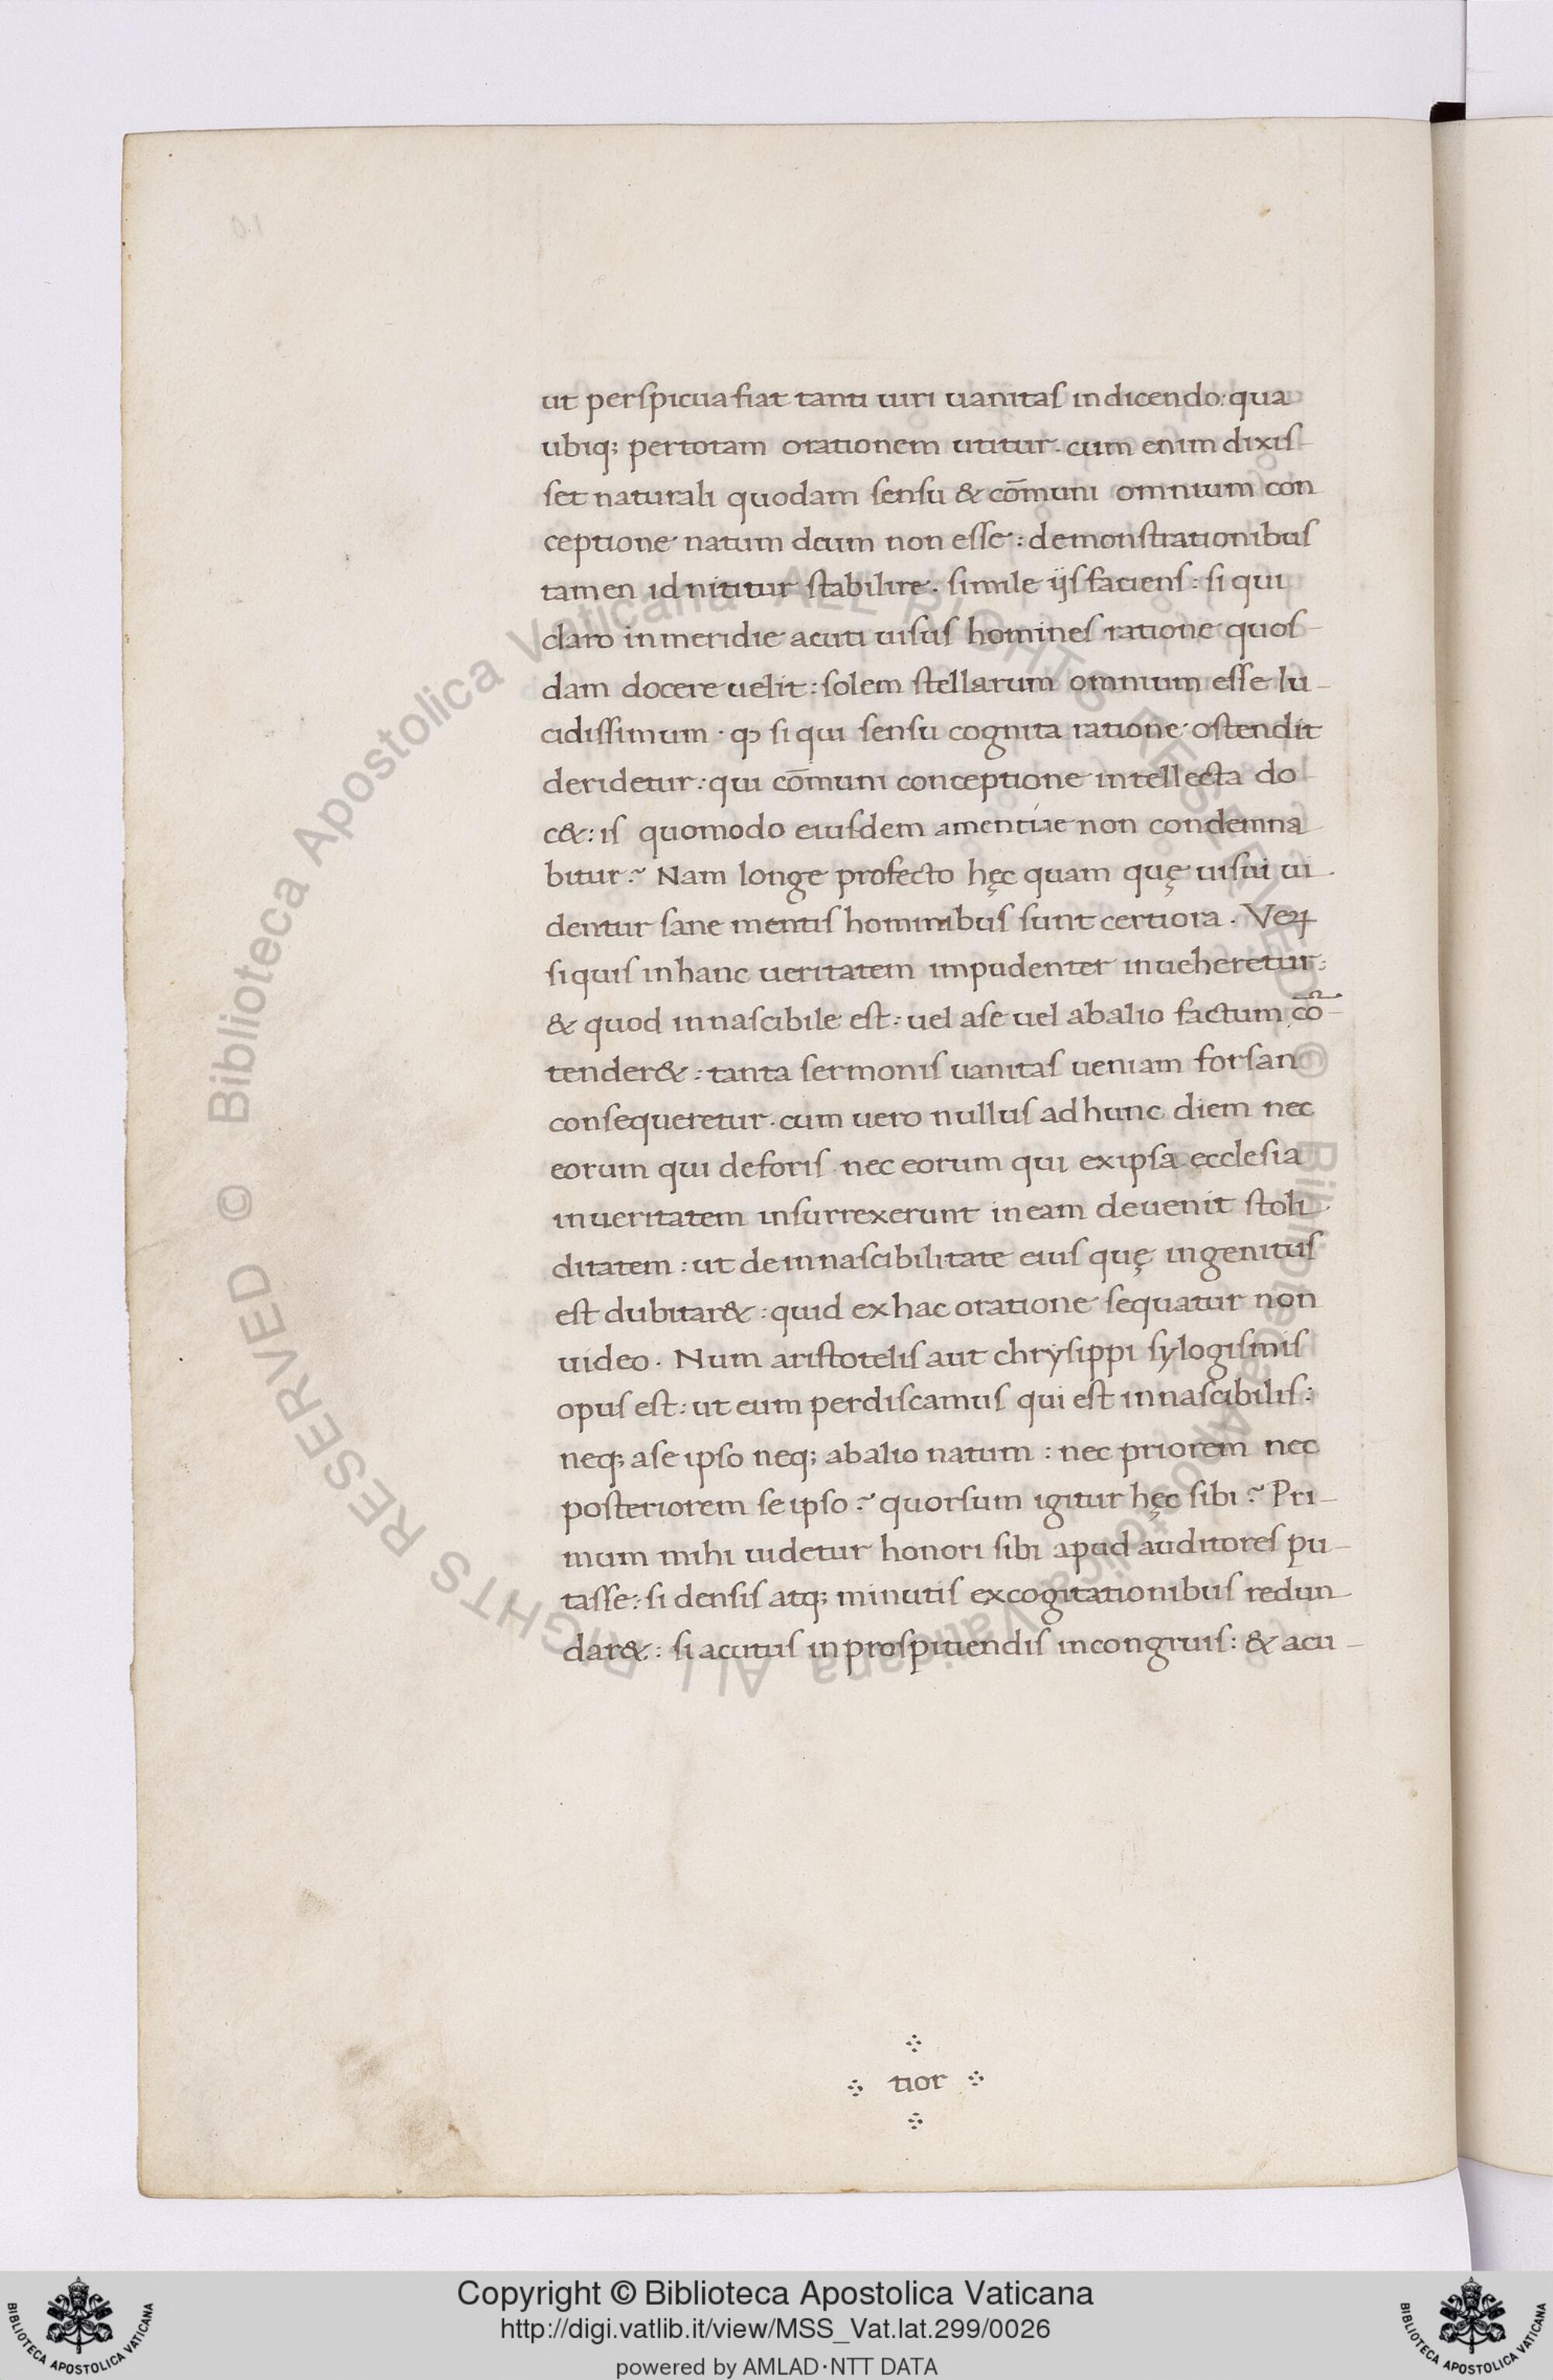 ut perspicua fiat tanti uiri uanitas in dicendo: qua
ubiq; per totam orationem utitur. cum enim dixis-
set naturali quodam sensu & cōmuni omnium con
ceptione natum deum non esse: demonstrationibus
tamen id nititur stabilire. simile ijs faciens: si qui
claro in meridie acuti uisus homines ratione quos-
dam docere uelit: solem stellarum omnium esse lu-
cidissimum. ꝙ si qui sensu cognita ratione ostendit
deridetur: qui cōmuni conceptione intellecta do-
c&: is quomodo eiusdem amentiae non condemna-
bitur? Nam longe profecto hęc quam quę uisui ui-
dentur sane mentis hominibus sunt certiora. Veꝝ
si quis in hanc ueritatem impudenter inueheretur:
& quod innascibile est: uel a se uel ab alio factum cō-
tender&: tanta sermonis uanitas ueniam forsan
consequeretur. cum uero nullus ad hunc diem nec
eorum qui deforis nec eorum qui ex ipsa ecclesia
in ueritatem insurrexerunt in eam deuenit stoli-
ditatem: ut de innascibilitate eius quę ingenitus
est dubitar&: quid ex hac oratione sequatur non
uideo. Num aristotelis aut chrysippi sylogismis
opus est: ut eum perdiscamus qui est innascibilis:
neq; a se ipso neq; ab alio natum: nec priorem nec
posteriorem se ipso? quorsum igitur hęc sibi? Pri-
mum mihi uidetur honori sibi apud auditores pu-
tasse: si densis atq; minutis excogitationibus redun-
dar&: si acutus in prospitiendis incongruis: & acu-
tior
© Biblioteca Apostolica Vaticana ALL RIGHTS RESERVED © Biblioteca Apostolica Vaticana ALL RIGHTS RESERVED
Copyright © Biblioteca Apostolica Vaticana
http://digi.vatlib.it/view/MSS_Vat.lat.299/0026
powered by AMLAD·NTT DATA
BIBLIOTECA APOSTOLICA VATICANA
BIBLIOTECA APOSTOLICA VATICANA